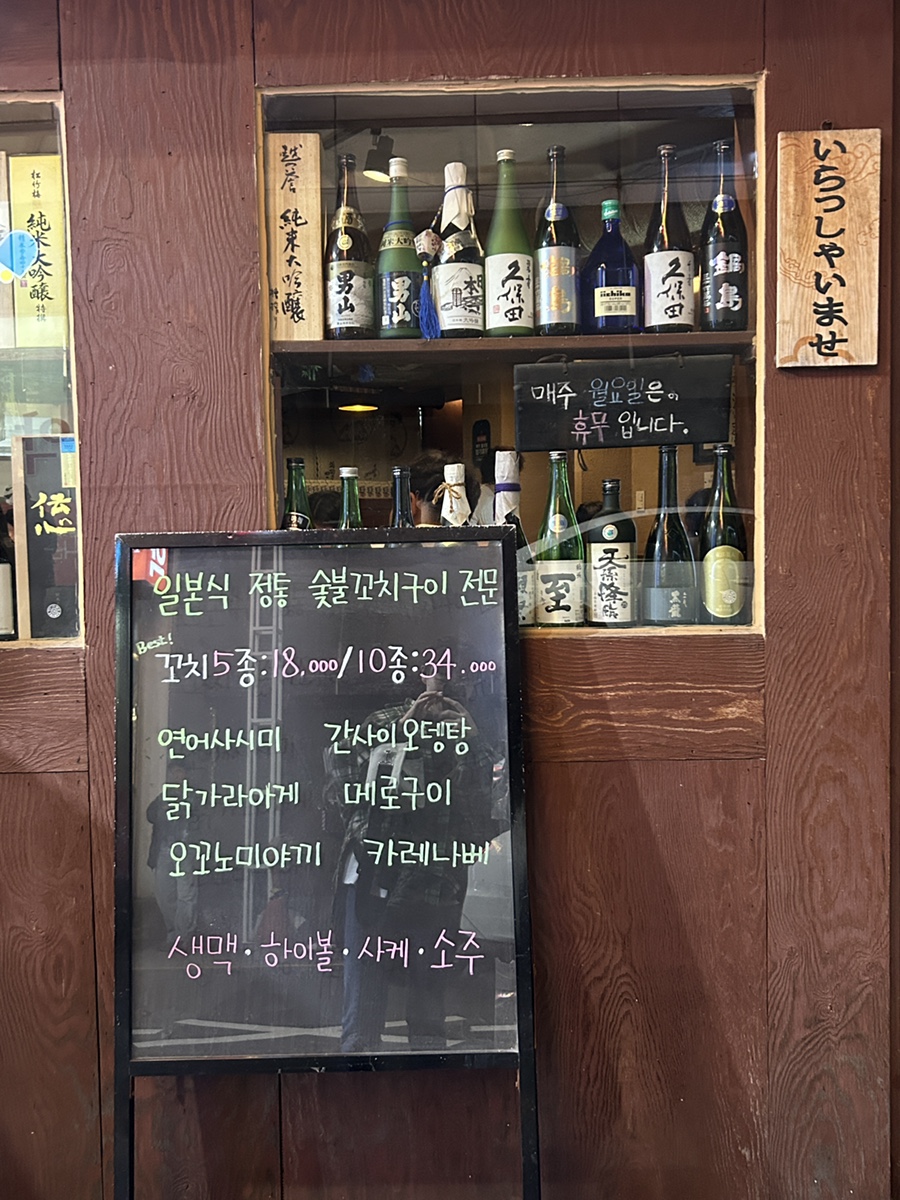 松竹梅
純米大吟醸
特撰
伝心
越誉 純米大吟醸
男山
男山
久保田
鍋島
iichiko
久保田
鍋島
いらっしゃいませ
매주 월요일은
휴무 입니다.
至
일본식 정통 숯불꼬치구이 전문
Best!
꼬치5종:18,000/10종:34.000
연어사시미 간사이오뎅탕
닭가라아게 메로구이
오꼬노미야끼 카레나베
생맥·하이볼·사케·소주